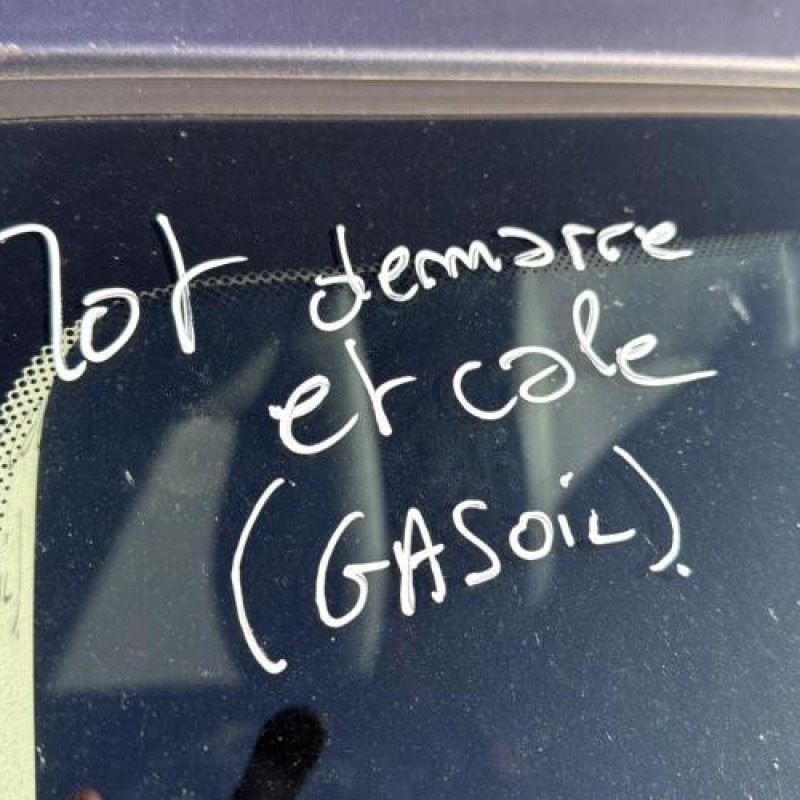 Mot demarre
et cale
(GASOiL).